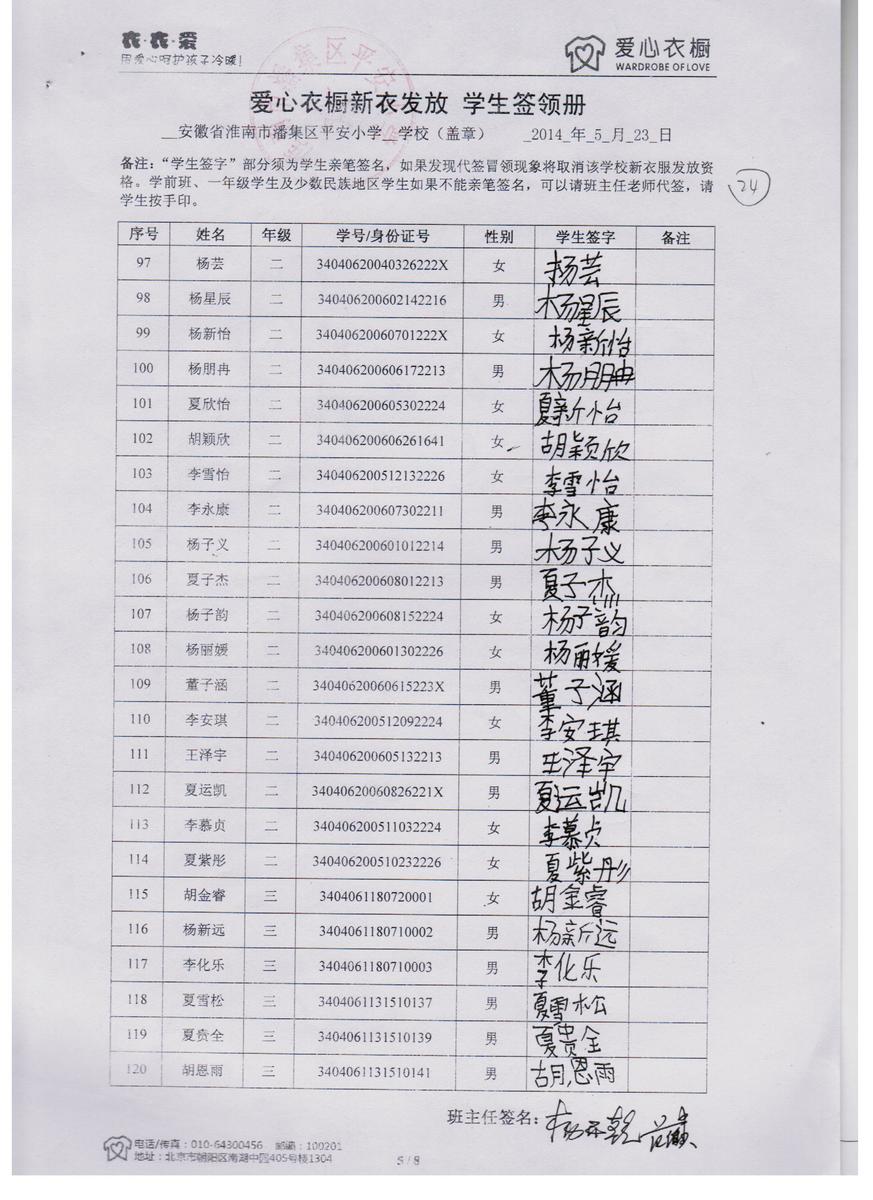 衣·衣·爱
用爱心呵护孩子冷暖!
爱心衣橱
WARDROBE OF LOVE
爱心衣橱新衣发放 学生签领册
安徽省淮南市潘集区平安小学 学校（盖章） 2014 年 5 月 23 日
备注：“学生签字”部分须为学生亲笔签名，如果发现代签冒领现象将取消该学校新衣服发放资
格。学前班、一年级学生及少数民族地区学生如果不能亲笔签名，可以请班主任老师代签，请
学生按手印。
24
序号 姓名 年级 学号/身份证号 性别 学生签字 备注
97 杨芸 二 34040620040326222X 女 杨芸
98 杨星辰 二 340406200602142216 男 杨星辰
99 杨新怡 二 34040620060701222X 女 杨新怡
100 杨朋冉 二 340406200606172213 男 杨朋冉
101 夏欣怡 二 340406200605302224 女 夏新怡
102 胡颖欣 二 340406200606261641 女 胡颖欣
103 李雪怡 二 340406200512132226 女 李雪怡
104 李永康 二 340406200607302211 男 李永康
105 杨子义 二 340406200601012214 男 杨子义
106 夏子杰 二 340406200608012213 男 夏子杰
107 杨子韵 二 340406200608152224 女 杨子韵
108 杨丽媛 二 340406200601302226 女 杨丽媛
109 董子涵 二 34040620060615223X 男 董子涵
110 李安琪 二 340406200512092224 女 李安琪
111 王泽宇 二 340406200605132213 男 王泽宇
112 夏运凯 二 34040620060826221X 男 夏运凯
113 李慕贞 二 340406200511032224 女 李慕贞
114 夏紫彤 二 340406200510232226 女 夏紫彤
115 胡金睿 三 3404061180720001 女 胡金睿
116 杨新远 三 3404061180710002 男 杨新远
117 李化乐 三 3404061180710003 男 李化乐
118 夏雪松 三 3404061131510137 男 夏雪松
119 夏贵全 三 3404061131510139 男 夏贵全
120 胡恩雨 三 3404061131510141 男 胡恩雨
班主任签名：
电话/传真：010-64300456 邮编：100201
地址：北京市朝阳区南湖中园405号楼1304
5 / 8